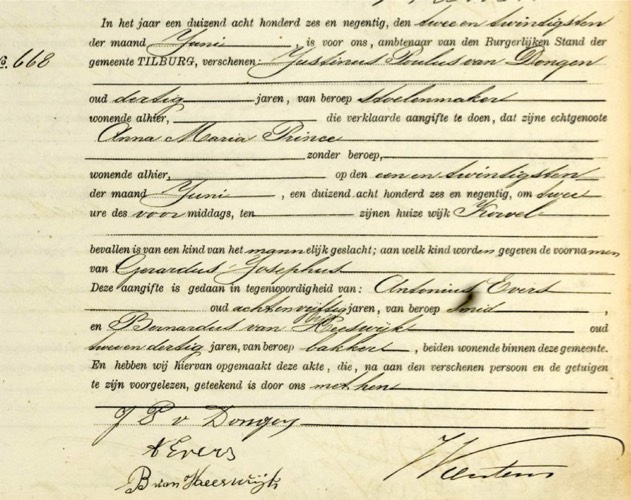 In het jaar een duizend acht honderd zes en negentig, den twee en twintigsten
der maand Juni is voor ons, ambtenaar van den Burgerlijken Stand der
No. 668 gemeente TILBURG, verschenen: Justinus Paulus van Dongen
oud dertig jaren, van beroep stoelenmaker
wonende alhier, die verklaarde aangifte te doen, dat zijne echtgenoote
Anna Maria Prince
zonder beroep,
wonende alhier, op den een en twintigsten
der maand Juni, een duizend acht honderd zes en negentig, om twee
ure des voor middags, ten zijnen huize wijk Korvel
bevallen is van een kind van het mannelijk geslacht; aan welk kind worden gegeven de voornamen
van Gerardus Josephus
Deze aangifte is gedaan in tegenwoordigheid van: Antonius Evers
oud acht en vijftig jaren, van beroep smid,
en Bernardus van Heeswijk oud
twee en dertig jaren, van beroep bakker, beiden wonende binnen deze gemeente.
En hebben wij hiervan opgemaakt deze akte, die, na aan den verschenen persoon en de getuigen
te zijn voorgelezen, geteekend is door ons met hen
J P v Dongen
A Evers
B van Heeswijk